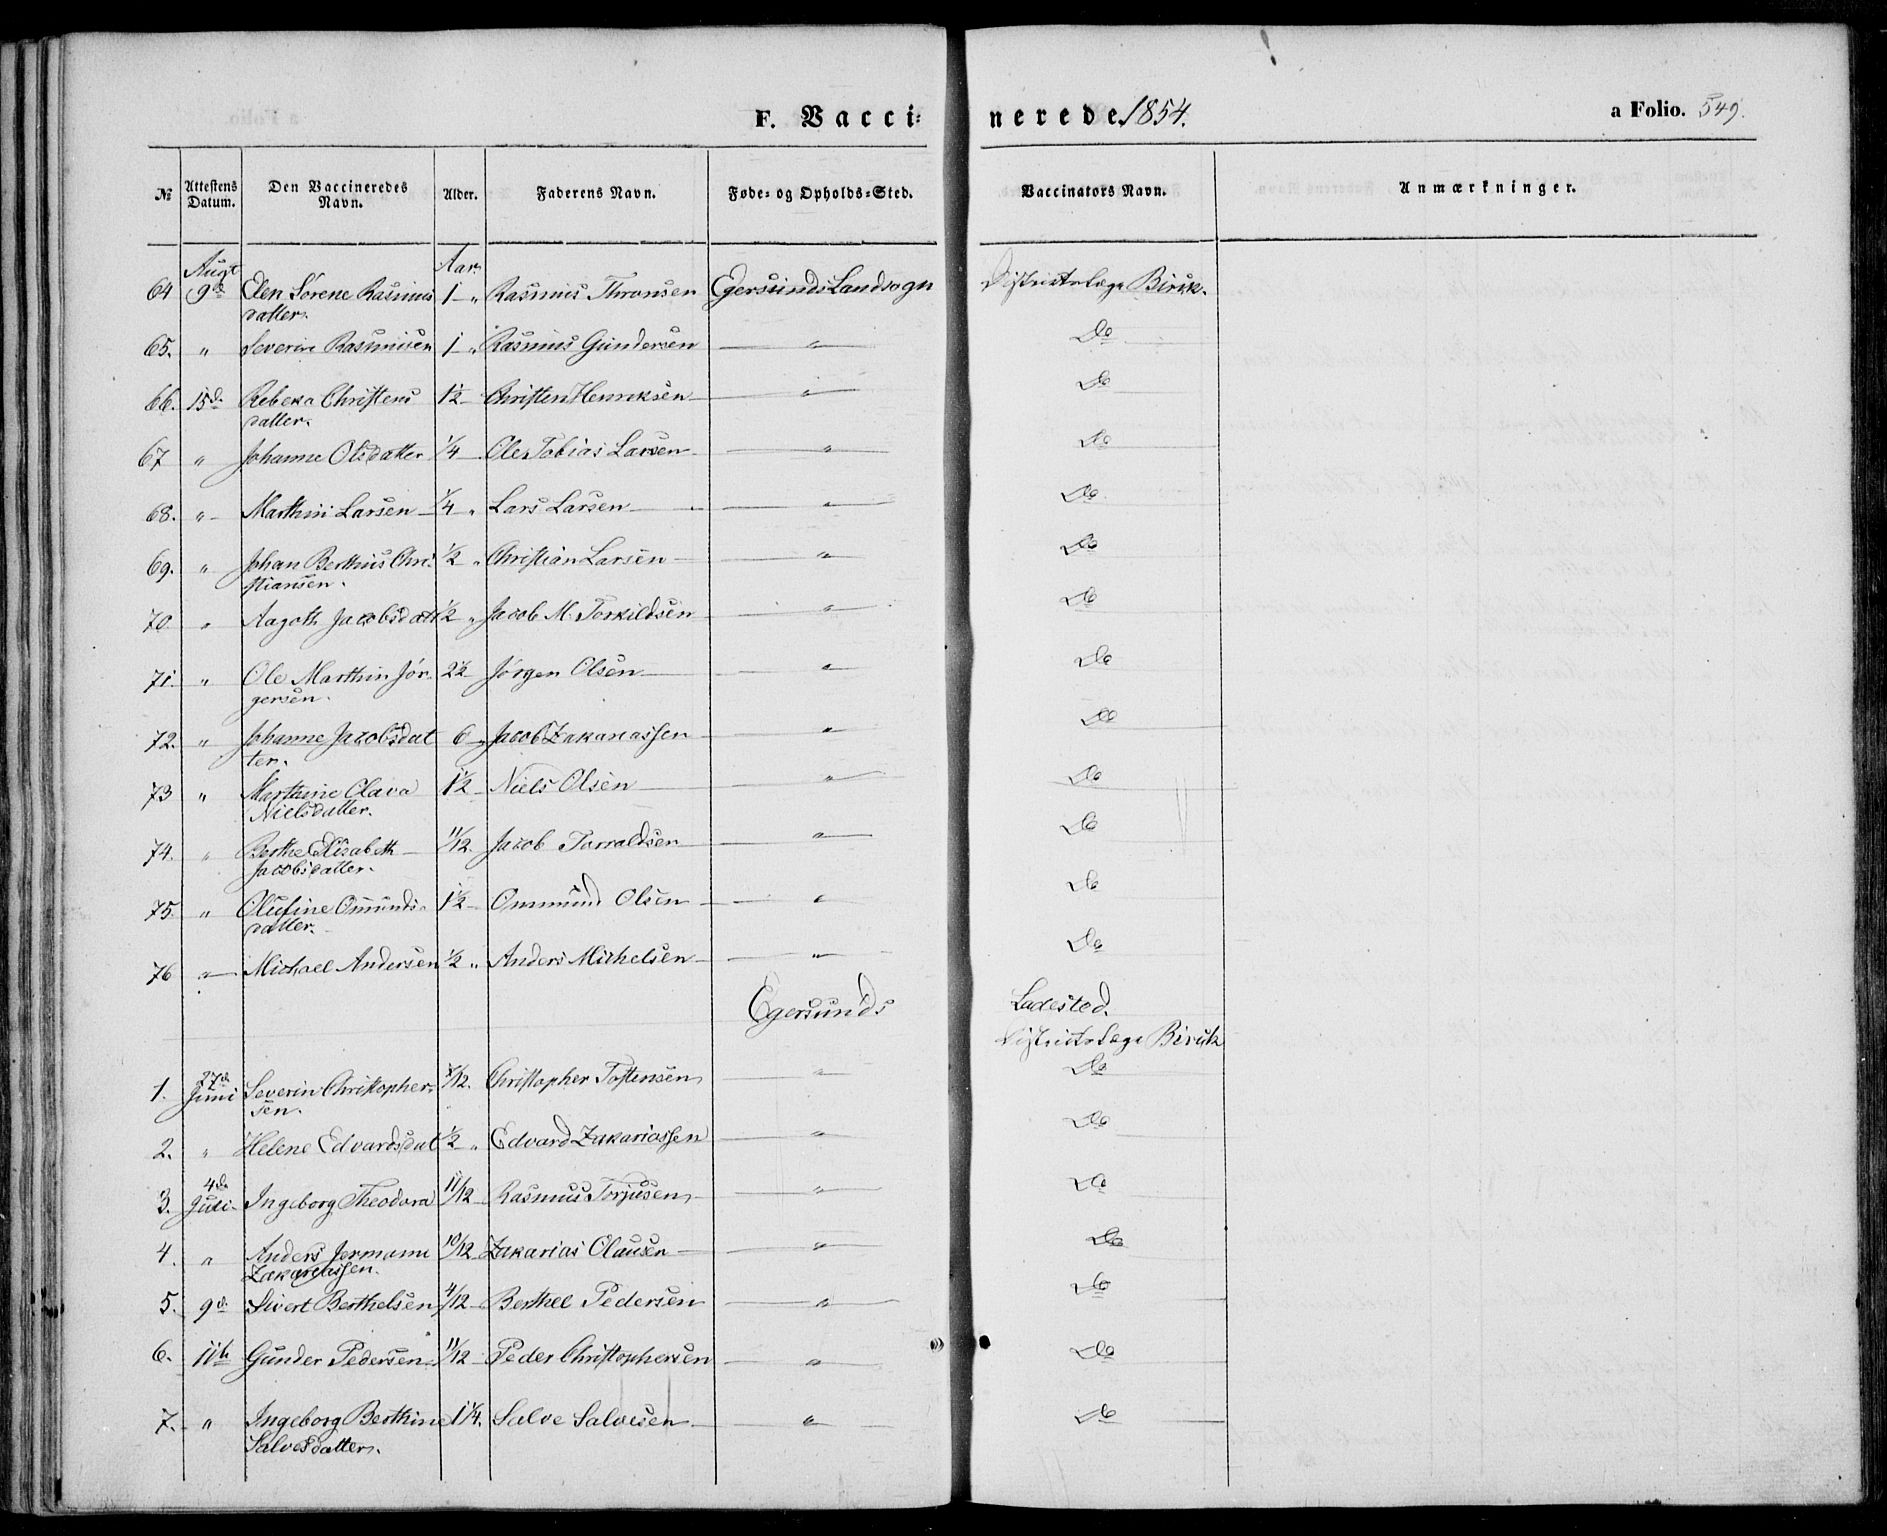 F. Vacci-nerede 1854. a Folio. 549.
№ Attestens Datum. Den Vaccineredes Navn. Alder. Faderens Navn. Føde- og Opholds-Sted. Vaccinators Navn. Anmærkninger.
Augt Aar
64 9de Elen Sørene Rasmus 1 - " Rasmus Thronsen Egersunds Landsogn Districtslæge Birch.
datter.
65. " Severin Rasmusen 1 - " Rasmus Gundersen " Do
66. 15d. Rebeka Christens 1½ - Christen Henriksen " Do
datter.
67 " Johanne Olsdatter 1/4 Ole Tobias Larsen " Do
68. " Marthin Larsen 1/4 " Lars Larsen " Do
69. " Johan Berthius Chri- 1/2 " Christian Larsen " Do
stiansen.
70. " Aagoth Jacobsdatt 1/2 " Jacob M. Torkildsen " Do
71. " Ole Marthin Jør- 2½ Jørgen Olsen " Do
gersen.
72. " Johanne Jacobsdat 6 - " Jacob Zakariassen " Do
ter.
73 " Marthine Olava 1½ Niels Olsen " Do
Nielsdatter.
74. " Berthe Elisabeth 11/12. Jacob Torvaldsen " Do
Jacobsdatter.
75. " Olufine Omunds- 1½ Ommund Olsen " Do
datter.
76 " Michael Andersen 1/2 " Anders Michelsen " Do
Egersunds Ladested.
Districtslæge Birch
1. 27d. Juni Severin Christopher- /12. Christopher Tostensen " Do
sen.
2. " Helene Edvardsdat 1/2 " Edvard Zakariassen " Do
3. 4d. Juli Ingeborg Theodora 11/12 Rasmus Torjusen " Do
4. " Anders Jermann 10/12 Zakarias Olausen " Do
Zakariassen.
5. 9d. Sivert Berthelsen 4/12 Berthel Pedersen " Do
6. 11te Gunder Pedersen 11/12 Peder Christophersen " Do
7. " Ingeborg Berthine 1¼. Salve Salvesen " Do
Salvesdatter.